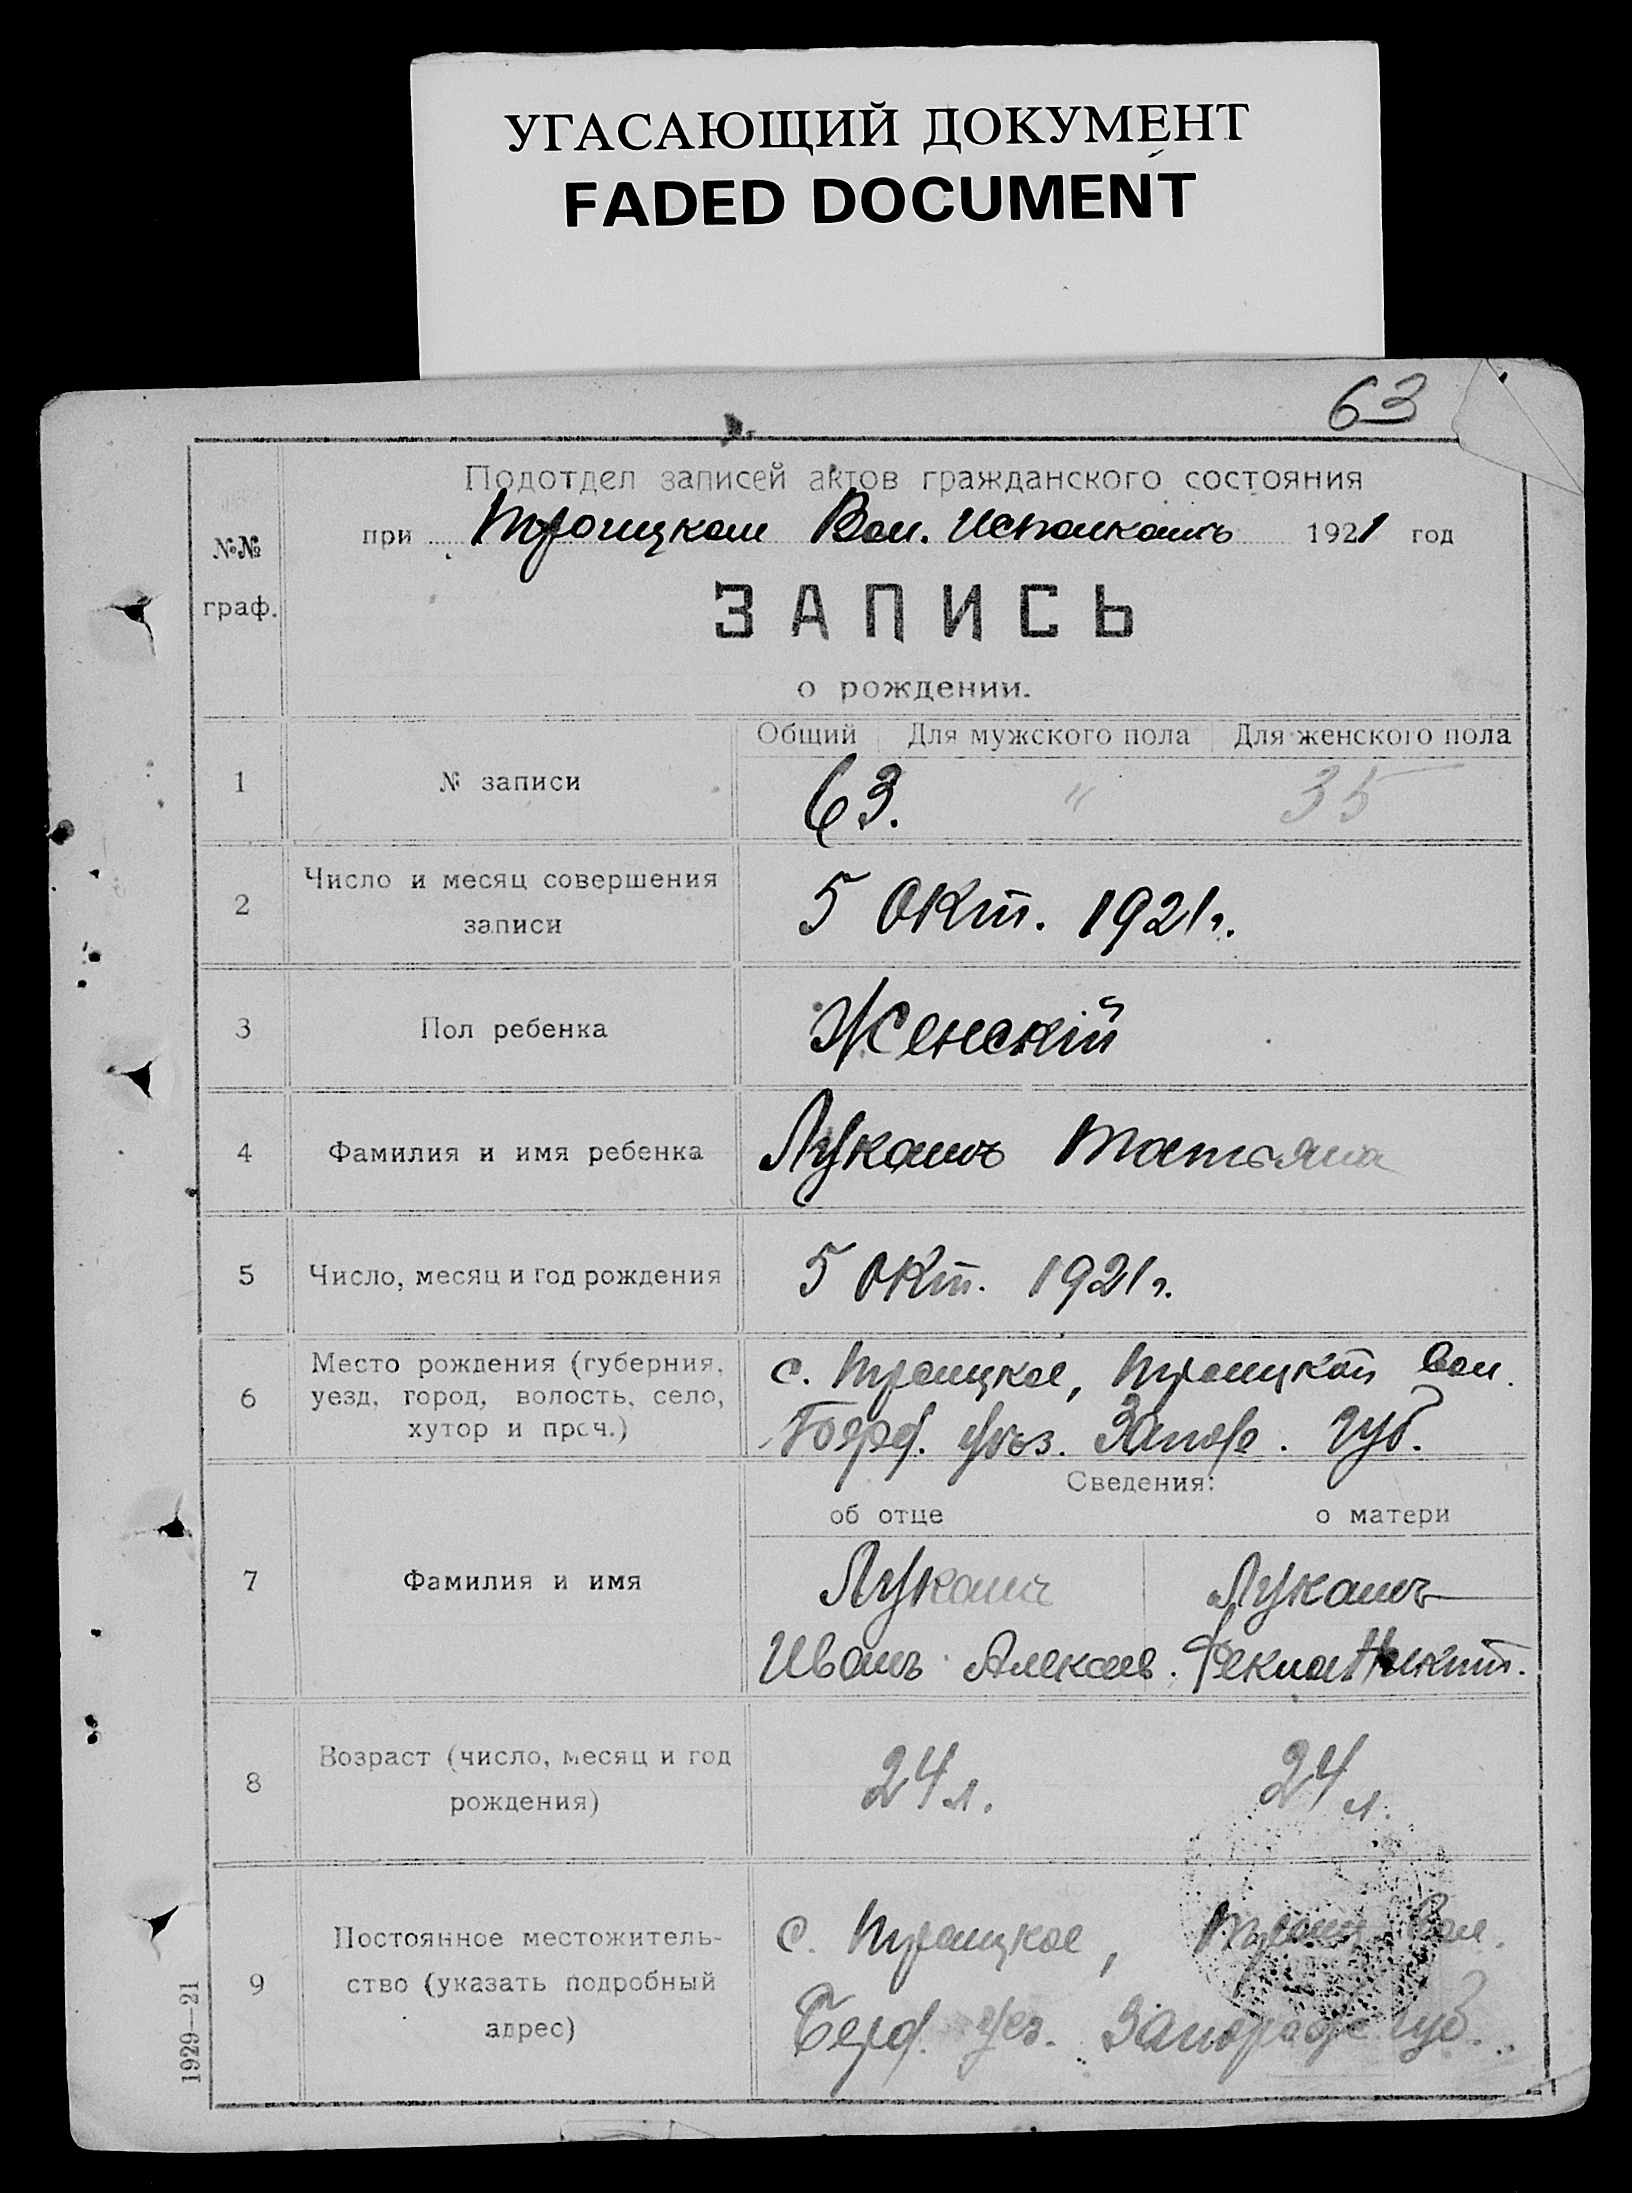 УГАСАЮЩИЙ ДОКУМЕНТ
FADED DOCUMENT
63
№№ граф.
Подотдел записей актов гражданского состояния
при Троицком Вол. Исполкомъ 1921 год
ЗАПИСЬ
о рождении.
Общий Для мужского пола Для женского пола
1 № записи 63. " 35
2 Число и месяц совершения
записи
5 Окт. 1921 г.
3 Пол ребенка Женскій
4 Фамилия и имя ребенка Лукашъ Татьяна
5 Число, месяц и год рождения 5 Окт. 1921 г.
6 Место рождения (губерния,
уезд, город, волость, село,
хутор и проч.)
с. Троицкое, Троицкой вол.
Бердя. уѣз. Запор. губ.
Сведения:
об отце о матери
7 Фамилия и имя
Лукашъ Лукашъ
Иванъ Алексеев. Фекла Никит.
8 Возраст (число, месяц и год
рождения)
24 л. 24 л.
9 Постоянное местожитель-
ство (указать подробный
адрес)
с. Троицкое, Троиц. Вол.
Берд. уез. Запорож. губ.
1929—21